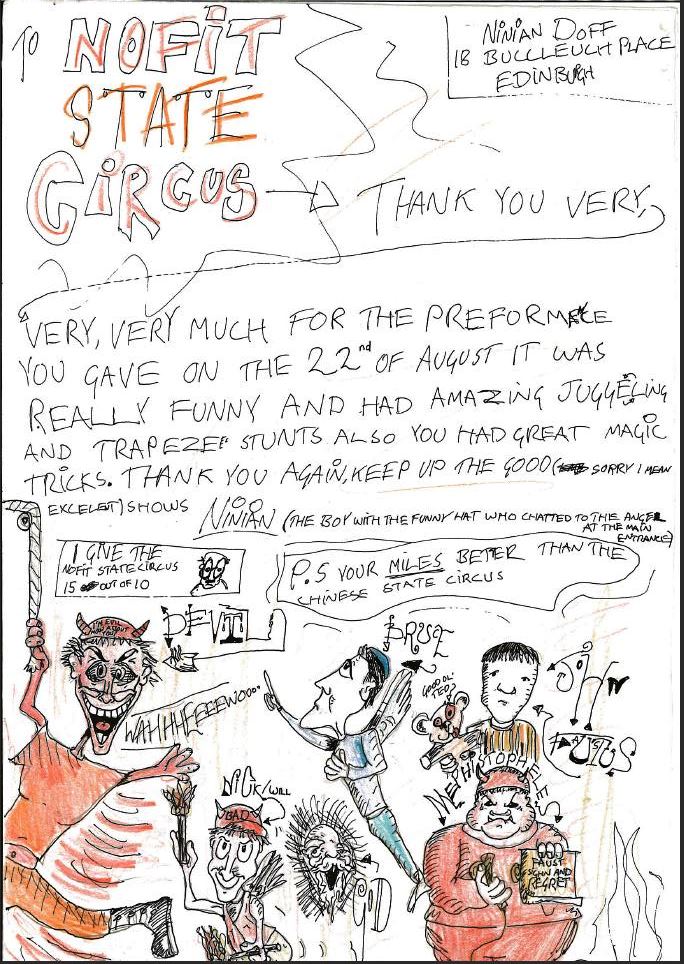 TO NOFIT
STATE
CIRCUS
NINIAN DOFF
18 BUCCLEUCH PLACE
EDINBURGH
THANK YOU VERY,
VERY, VERY MUCH FOR THE PREFORM CE
YOU GAVE ON THE 22nd OF AUGUST IT WAS
REALLY FUNNY AND HAD AMAZING JUGGELING
AND TRAPEZE STUNTS ALSO YOU HAD GREAT MAGIC
TRICKS. THANK YOU AGAIN, KEEP UP THE GOOD ( SORRY I MEAN
EXCELENT) SHOWS
NINIAN (THE BOY WITH THE FUNNY HAT WHO CHATTED TO THE ANGEL
AT THE MAIN
ENTRANCE)
I GIVE THE
NOFIT STATE CIRCUS
15 OUT OF 10
P.S YOUR MILES BETER THAN THE
CHINESE STATE CIRCUS
DEVIL
I'M EVIL
WAHHHEEEEWOOO...
BRUCE
GOOD OL'
TED
JOHN
FAUSTUS
MEPHISTOPHELES
NICK/WILL
BAD
GOD
FAUST
SIGN AND
REGRET